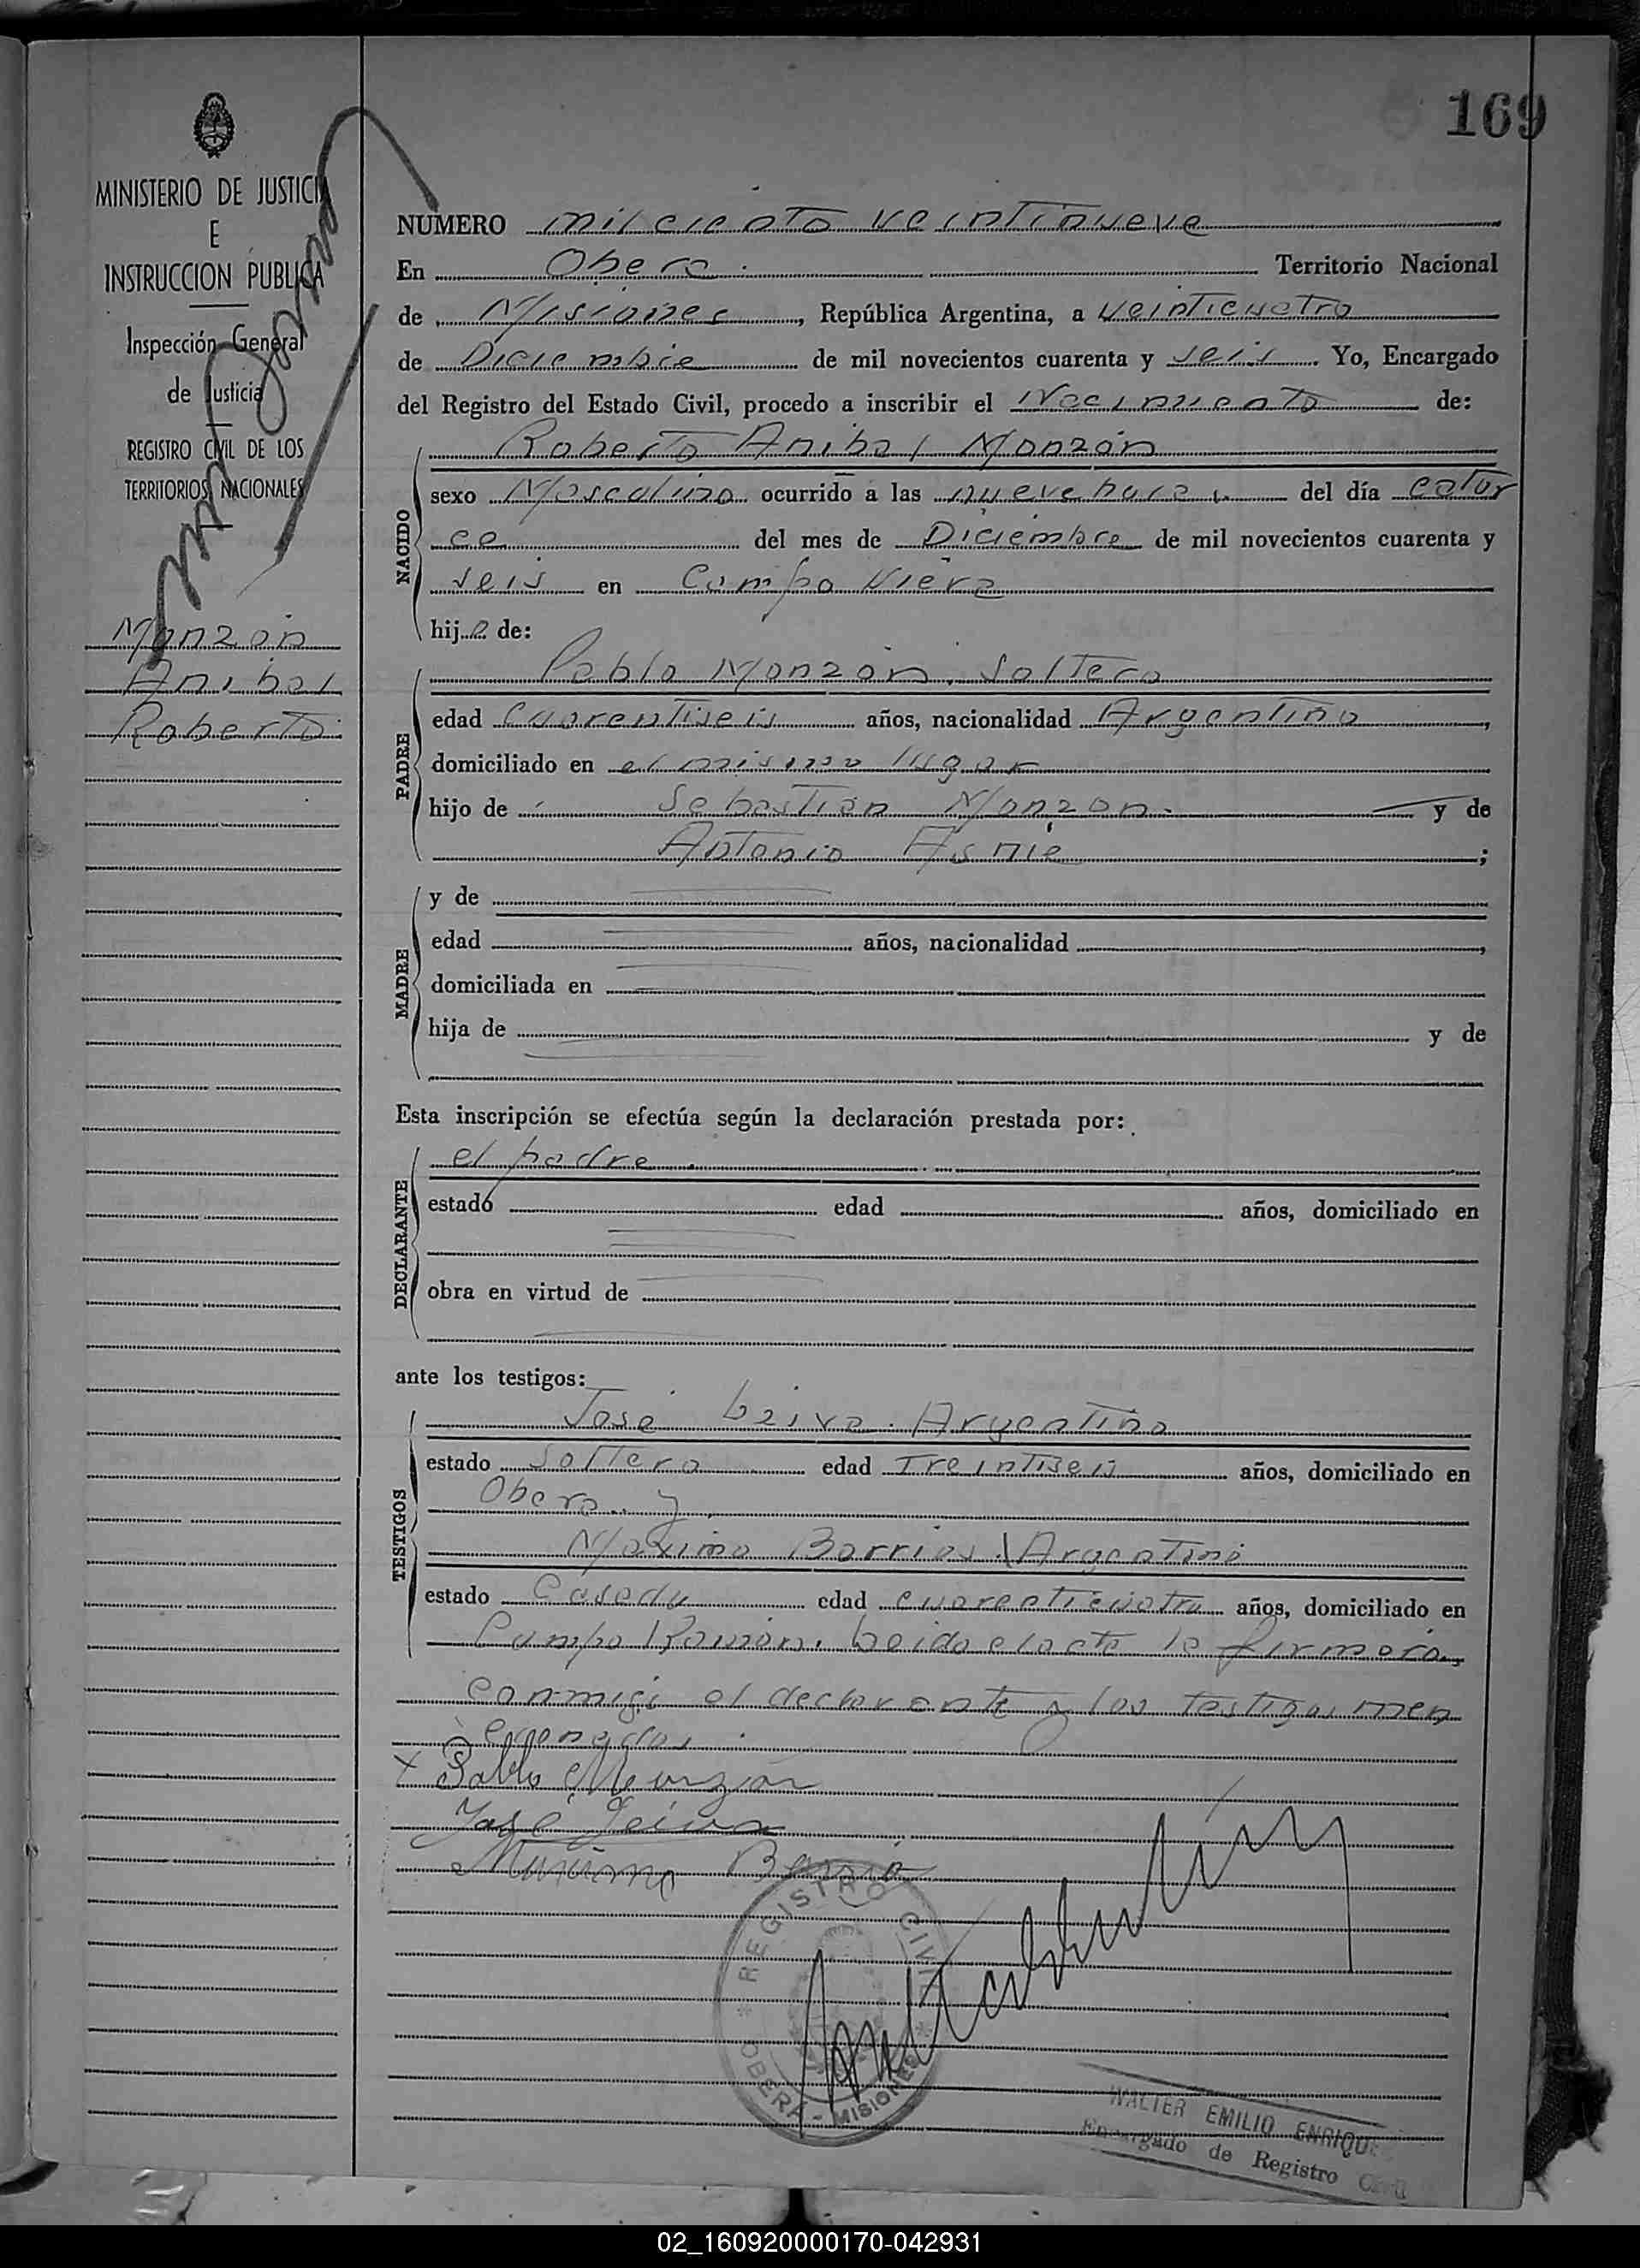 169
MINISTERIO DE JUSTICIA
E
INSTRUCCION PUBLICA
Inspección General
de Justicia
REGISTRO CIVIL DE LOS
TERRITORIOS NACIONALES
Monzón
Anibal
Roberto
NUMERO mil ciento veintinueve
En Obera. Territorio Nacional
de Misiones, República Argentina, a veinticuatro
de Diciembre de mil novecientos cuarenta y seis. Yo, Encargado
del Registro del Estado Civil, procedo a inscribir el Nacimiento de:
NACIDO
Roberto Anibal Monzón
sexo Masculino ocurrido a las nueve horas. del día cator
ce del mes de Diciembre de mil novecientos cuarenta y
seis en Campo Viera
hijo de:
PADRE
Pablo Monzón. Soltero
edad cuarentiseis años, nacionalidad Argentino,
domiciliado en el mismo lugar
hijo de Sebastian Monzon. y de
Antonio;
MADRE
y de
edad años, nacionalidad,
domiciliada en
hija de y de
Esta inscripción se efectúa según la declaración prestada por:
DECLARANTE
el padre.
estado edad años, domiciliado en
obra en virtud de
ante los testigos:
TESTIGOS
José Leiva. Argentino
estado Soltero edad Treintiseis años, domiciliado en
Obera. y
Maximo Barrios. Argentino
estado Casado edad cuarenticuatro años, domiciliado en
Campo Ramón. Leida el acta la firmaron
conmigo el declarante y los testigos men
cionados.
x Pablo Monzón
José Leiva
Maximo Barrio
REGISTRO CIVIL
OBERA - MISIONES
WALTER EMILIO ENRIQU
Encargado de Registro Civil
02_160920000170-042931